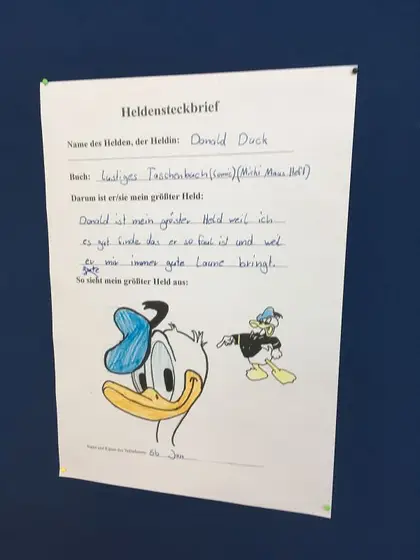 Heldensteckbrief
Name des Helden, der Heldin: Donald Duck
Buch: Lustiges Taschenbuch (Comic) (Michi Maus Heft)
Darum ist er/sie mein größter Held:
Donald ist mein gröster Held weil ich
es gut finde das er so faul ist und weil
er mir immer gute Laune bringt.
gute
So sieht mein größter Held aus:
6b Jan